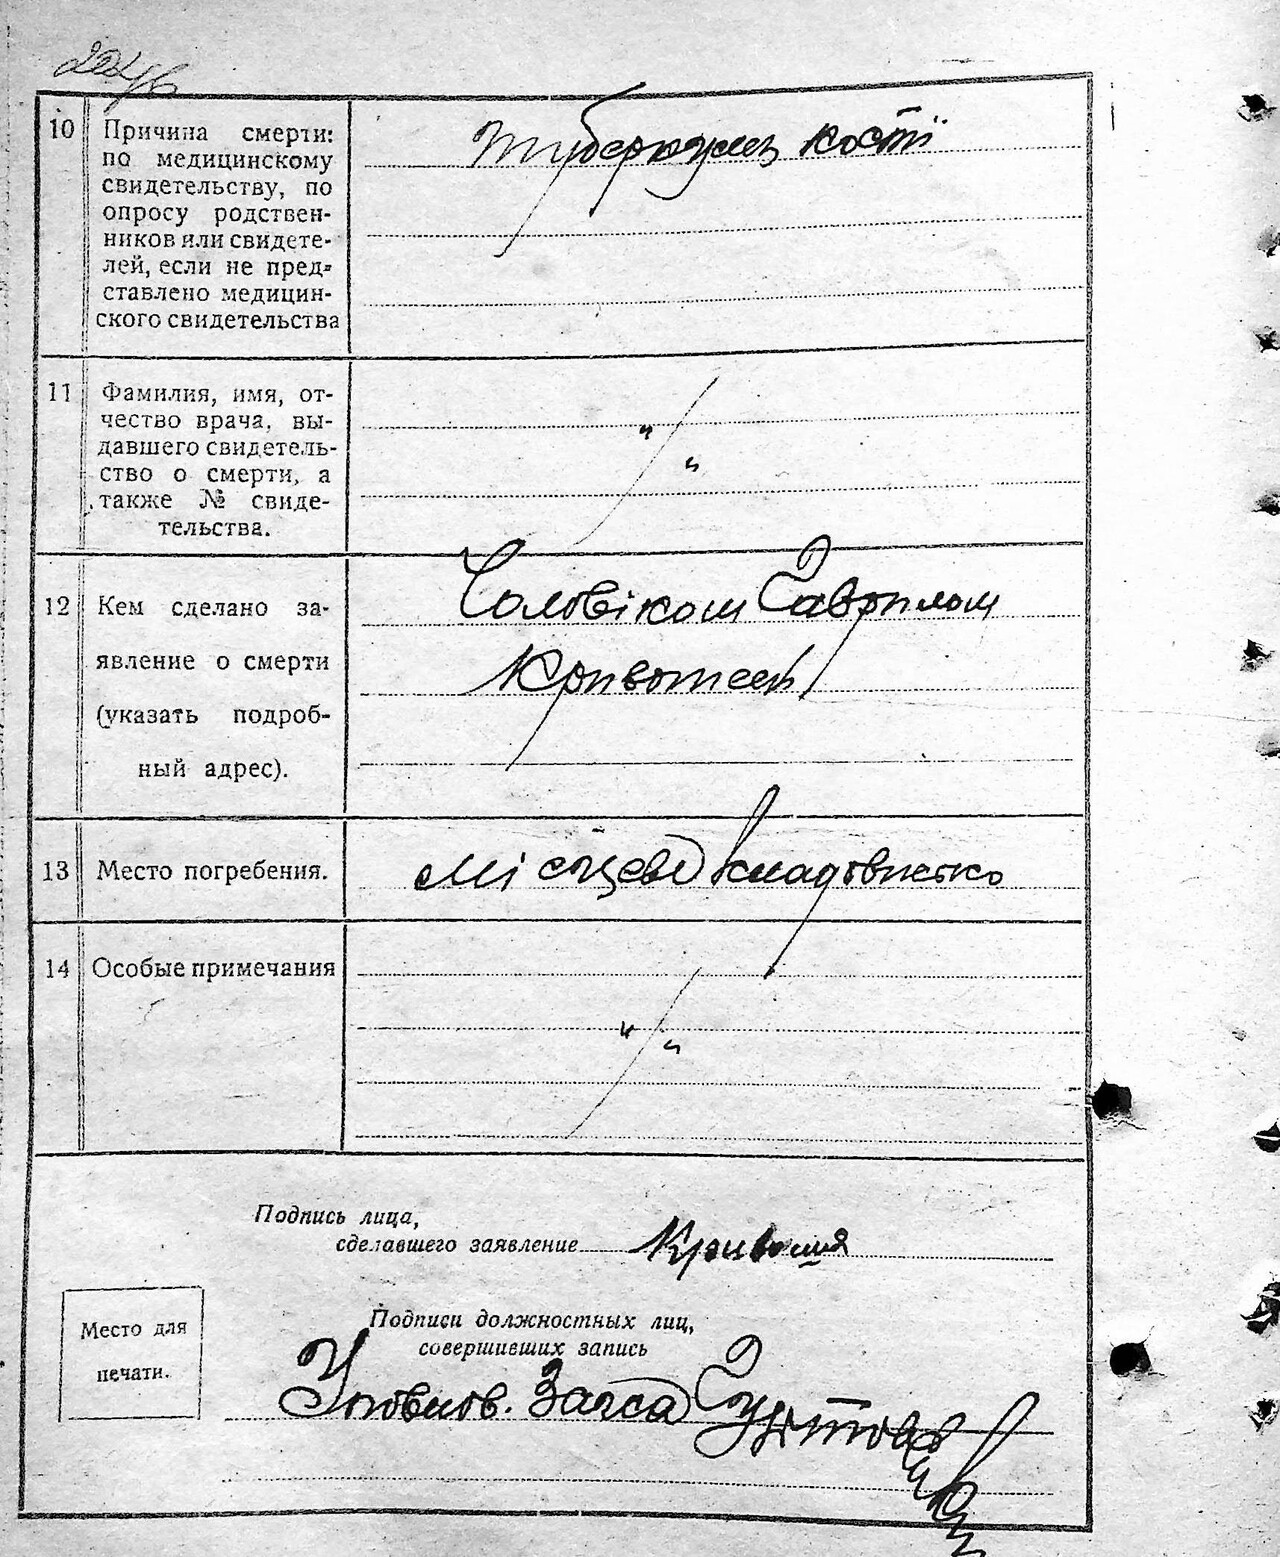 10
Причина смерти:
по медицинскому
свидетельству, по
опросу родствен-
ников или свидете-
лей, если не пред-
ставлено медицин-
ского свидетельства
туберкульз кості
11
Фамилия, имя, от-
чество врача, вы-
давшего свидетель-
ство о смерти, а
также № свиде-
тельства.
" "
12
Кем сделано за-
явление о смерти
(указать подроб-
ный адрес).
Чоловіком Гаврилом
13
Место погребения.
місцеве кладовисько
14
Особые примечания
" "
Подпись лица,
сделавшего заявление
Кривошия
Место для
печати.
Подписи должностных лиц,
совершивших запись
Уповнов. Загса